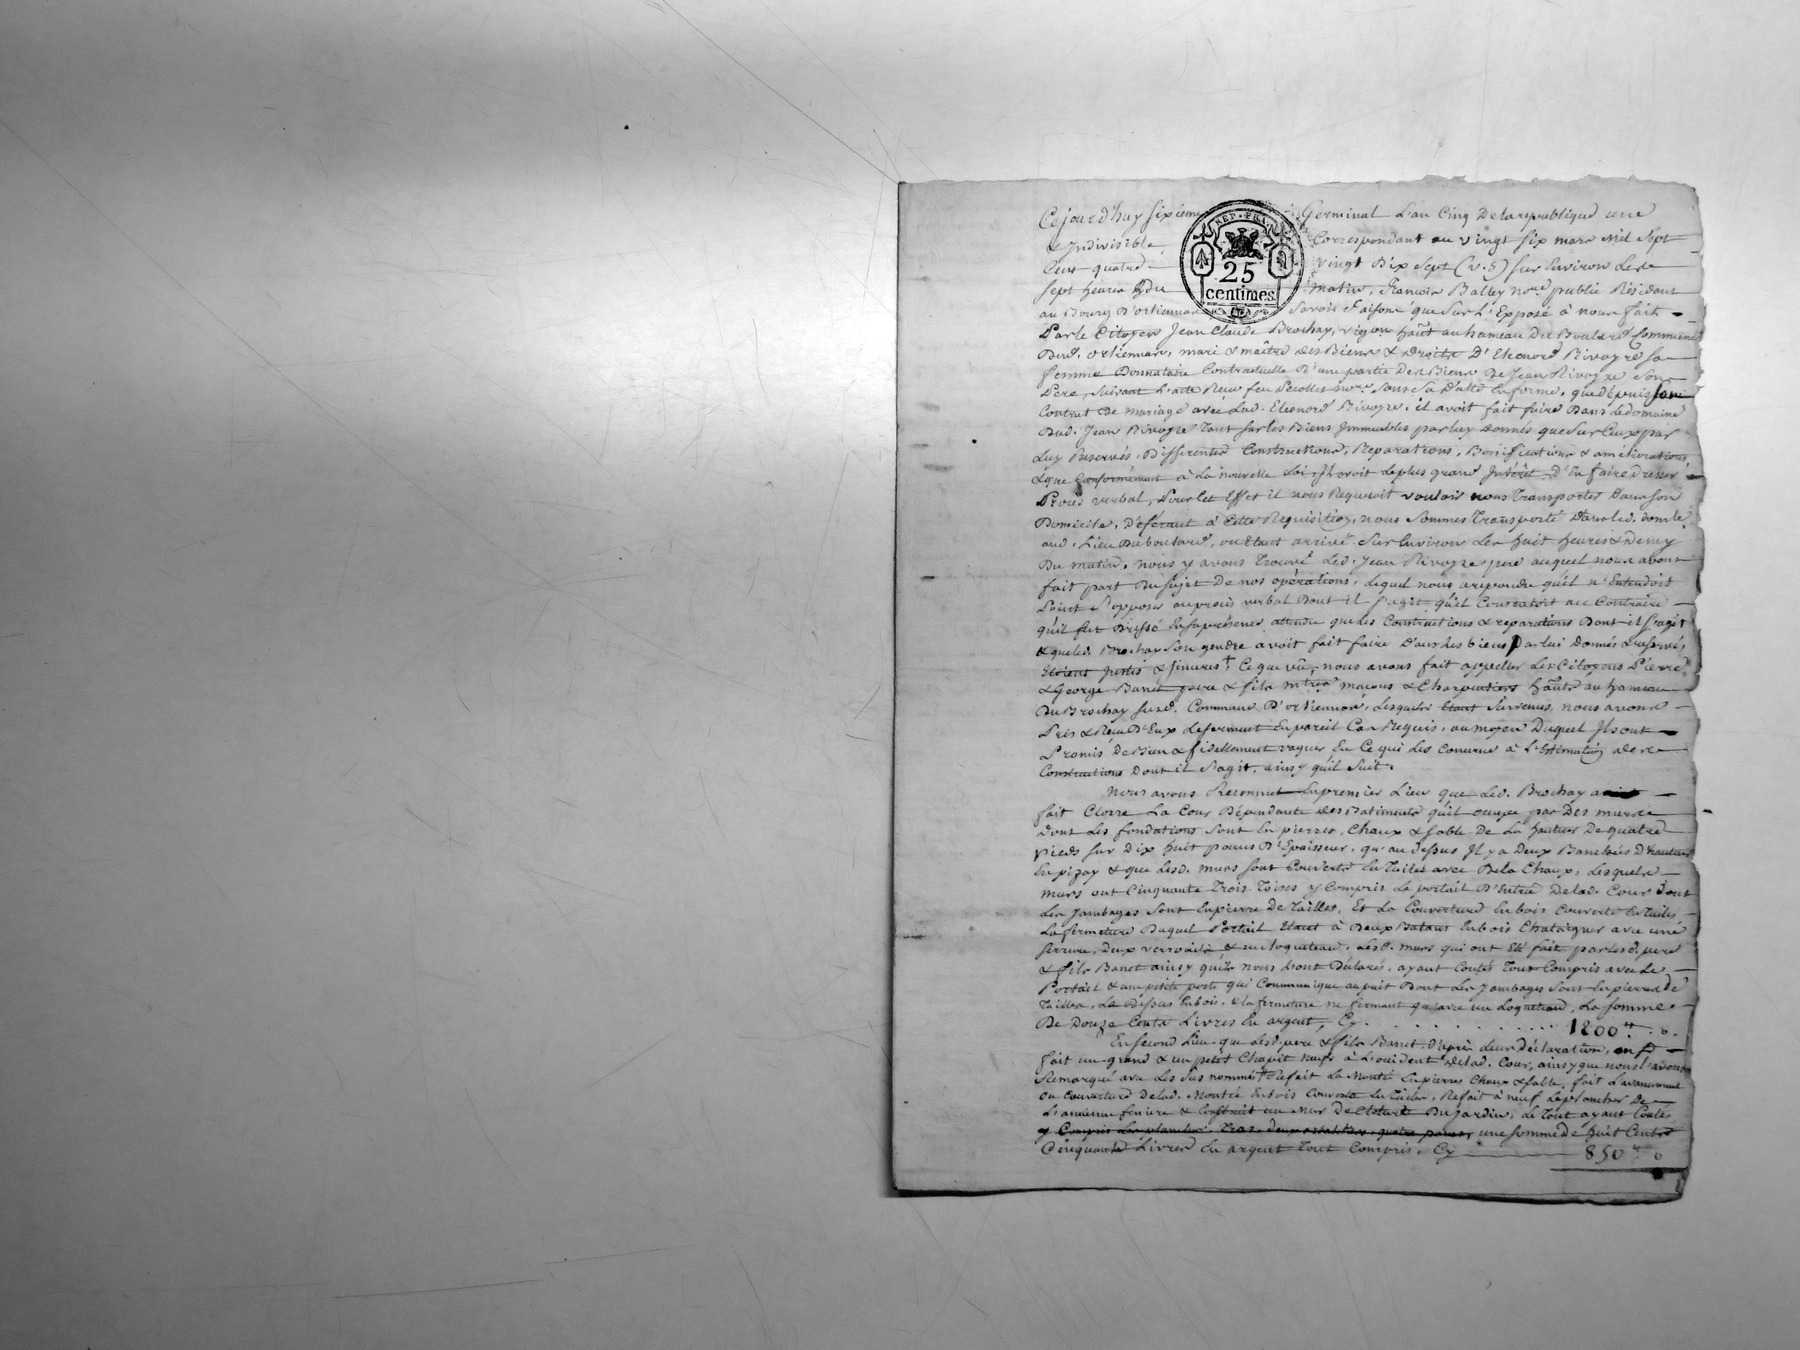 Cejourd'huy sixieme Germinal L'an Cinq De la republique une
& Indivisible Correspondant au vingt six mars Mil Sept
Cent quatre vingt Dix Sept (v.s) sur Environ Les
sept heures Du matin, François Balley no.re public Résidant
au Bourg D'ortiennas Savoir Faisons que sur L'Exposé à nous fait
Par le Citoyen Jean Claude Brochay, vigon ha̅t au hameau Du Boulard Commune
Dud. ortiennas, mari & maître des Biens & droits D'Eleonord Rivoyre sa
femme Donnataire Contractuelle D'une partie Des Biens De Jean Rivoyre son
Pere, suivant L'acte Reçu feu Decolles no.re sous sa D'atte En forme, que depuis son
Contrat De mariage avec Lad. Eleonord Rivoyre, il avoit fait faire Dans Le domaine
Dud. Jean Rivoyre Tant sur les Biens Immeubles par luy Donnés que sur Ceux par
Luy Reservés, Differentes Constructions, Reparations, Bonifications & améliorations
& que Conformément à La nouvelle Loi, Il avoit le plus grand Intérêt D'En faire dresser
Procès verbal, Pour Cet Effet il nous Requeroit vouloir nous Transporter Dans son
Domicile, D'éferant à Cette Requisition, nous sommes Transporté Dans led. domle
aud. Lieu Du boulard, ou Etant arrivé sur Environ Les huit heures & Demy
Du matin, nous y avons Trouvé Led. Jean Rivoyre pere auquel nous avons
fait part Du sujet De nos opérations, Lequel nous a repondu qu'il n'Entendoit
Point S'opposer au procès verbal Dont il s'agit qu'il Consentoit au Contraire
qu'il fut Dressé En sa présence attendu que les Constructions & reparations Dont il s'agit
& que led. Brochay son gendre avoit fait faire Dans les biens Par lui Donnés & reservés,
Etoient justes & sinceres †, Ce que vû, nous avons fait appeller Les Citoyens Pierre
& George Banet pere & fils mtres macons & Charpentiers ha̅ts au hameau
Du Brochay susd. Commune D'ortiennas, Lesquels Etant survenus nous avons
Pris & Reçu D'Eux Le serment En pareil Cas Requis, au moyen Duquel Ils ont
Promis De Bien & fidellement vaquer En Ce qui Les Concerne à L'Estimation des
Constructions Dont il s'agit, ainsy qu'il suit.
Nous avons Reconnut En premier Lieu que Led. Brochay a
fait Clorre La Cour Dépendante des Batiments qu'il occupe par Des murs
Dont Les fondations sont En pierres, Chaux & sable De La hauteur De quatre
Pieds sur Dix huit pouces D'Epaisseur, qu'au dessus Il y a Deux Banchées D'hauteur
En pizay & que Lesd. murs sont Couverts En Tuiles avec De la Chaux, Lesquels
murs ont Cinquante Trois Toises y Compris Le portail D'Entrée De lad. Cour Dont
Les Jambages sont En pierre De Tailles, Et La Couverture En bois Couverte En Tuiles
La fermeture Duquel Portail Etant à Deux Batans En bois Chataigner avec une
serrure, Deux verroüils & un loqueteau, Lesd. murs qui ont Eté fait par Lesd. pere
& fils Banet ainsy qu'ils nous L'ont Déclarés, ayant Coutés Tout Compris avec Le
Portail & une petite porte qui Communique au puit Dont Les Jambages sont En pierres de
Tailles, Le Dessus En bois, & la fermeture ne fermant qu'avec un Loqueteau, La somme
De Douze Cents Livres En argent, Cy . . . . . . . . . . 1200 ₶ . o .
En second Lieu que Lesd. pere & fils Banet d'après Leur Déclaration, ont
fait un grand & un petit Chapit neufs à L'occident De lad. Cour, ainsy que nous L'avons
Remarqué avec Les sus nommés † Refait La Montée En pierres Chaux & sable, fait L'avancement
ou Couverture De lad. Montée En bois Couverte En Tuiles, Refait à neuf Le plancher De
L'ancienne feniere & Construit un Mur De Cloture Du jardin, Le Tout ayant Coutés
y Compris Les planches une somme de huit Cents
Cinquante Livres En argent Tout Compris, Cy 850 ₶ o
REP. FRA.
25
centimes